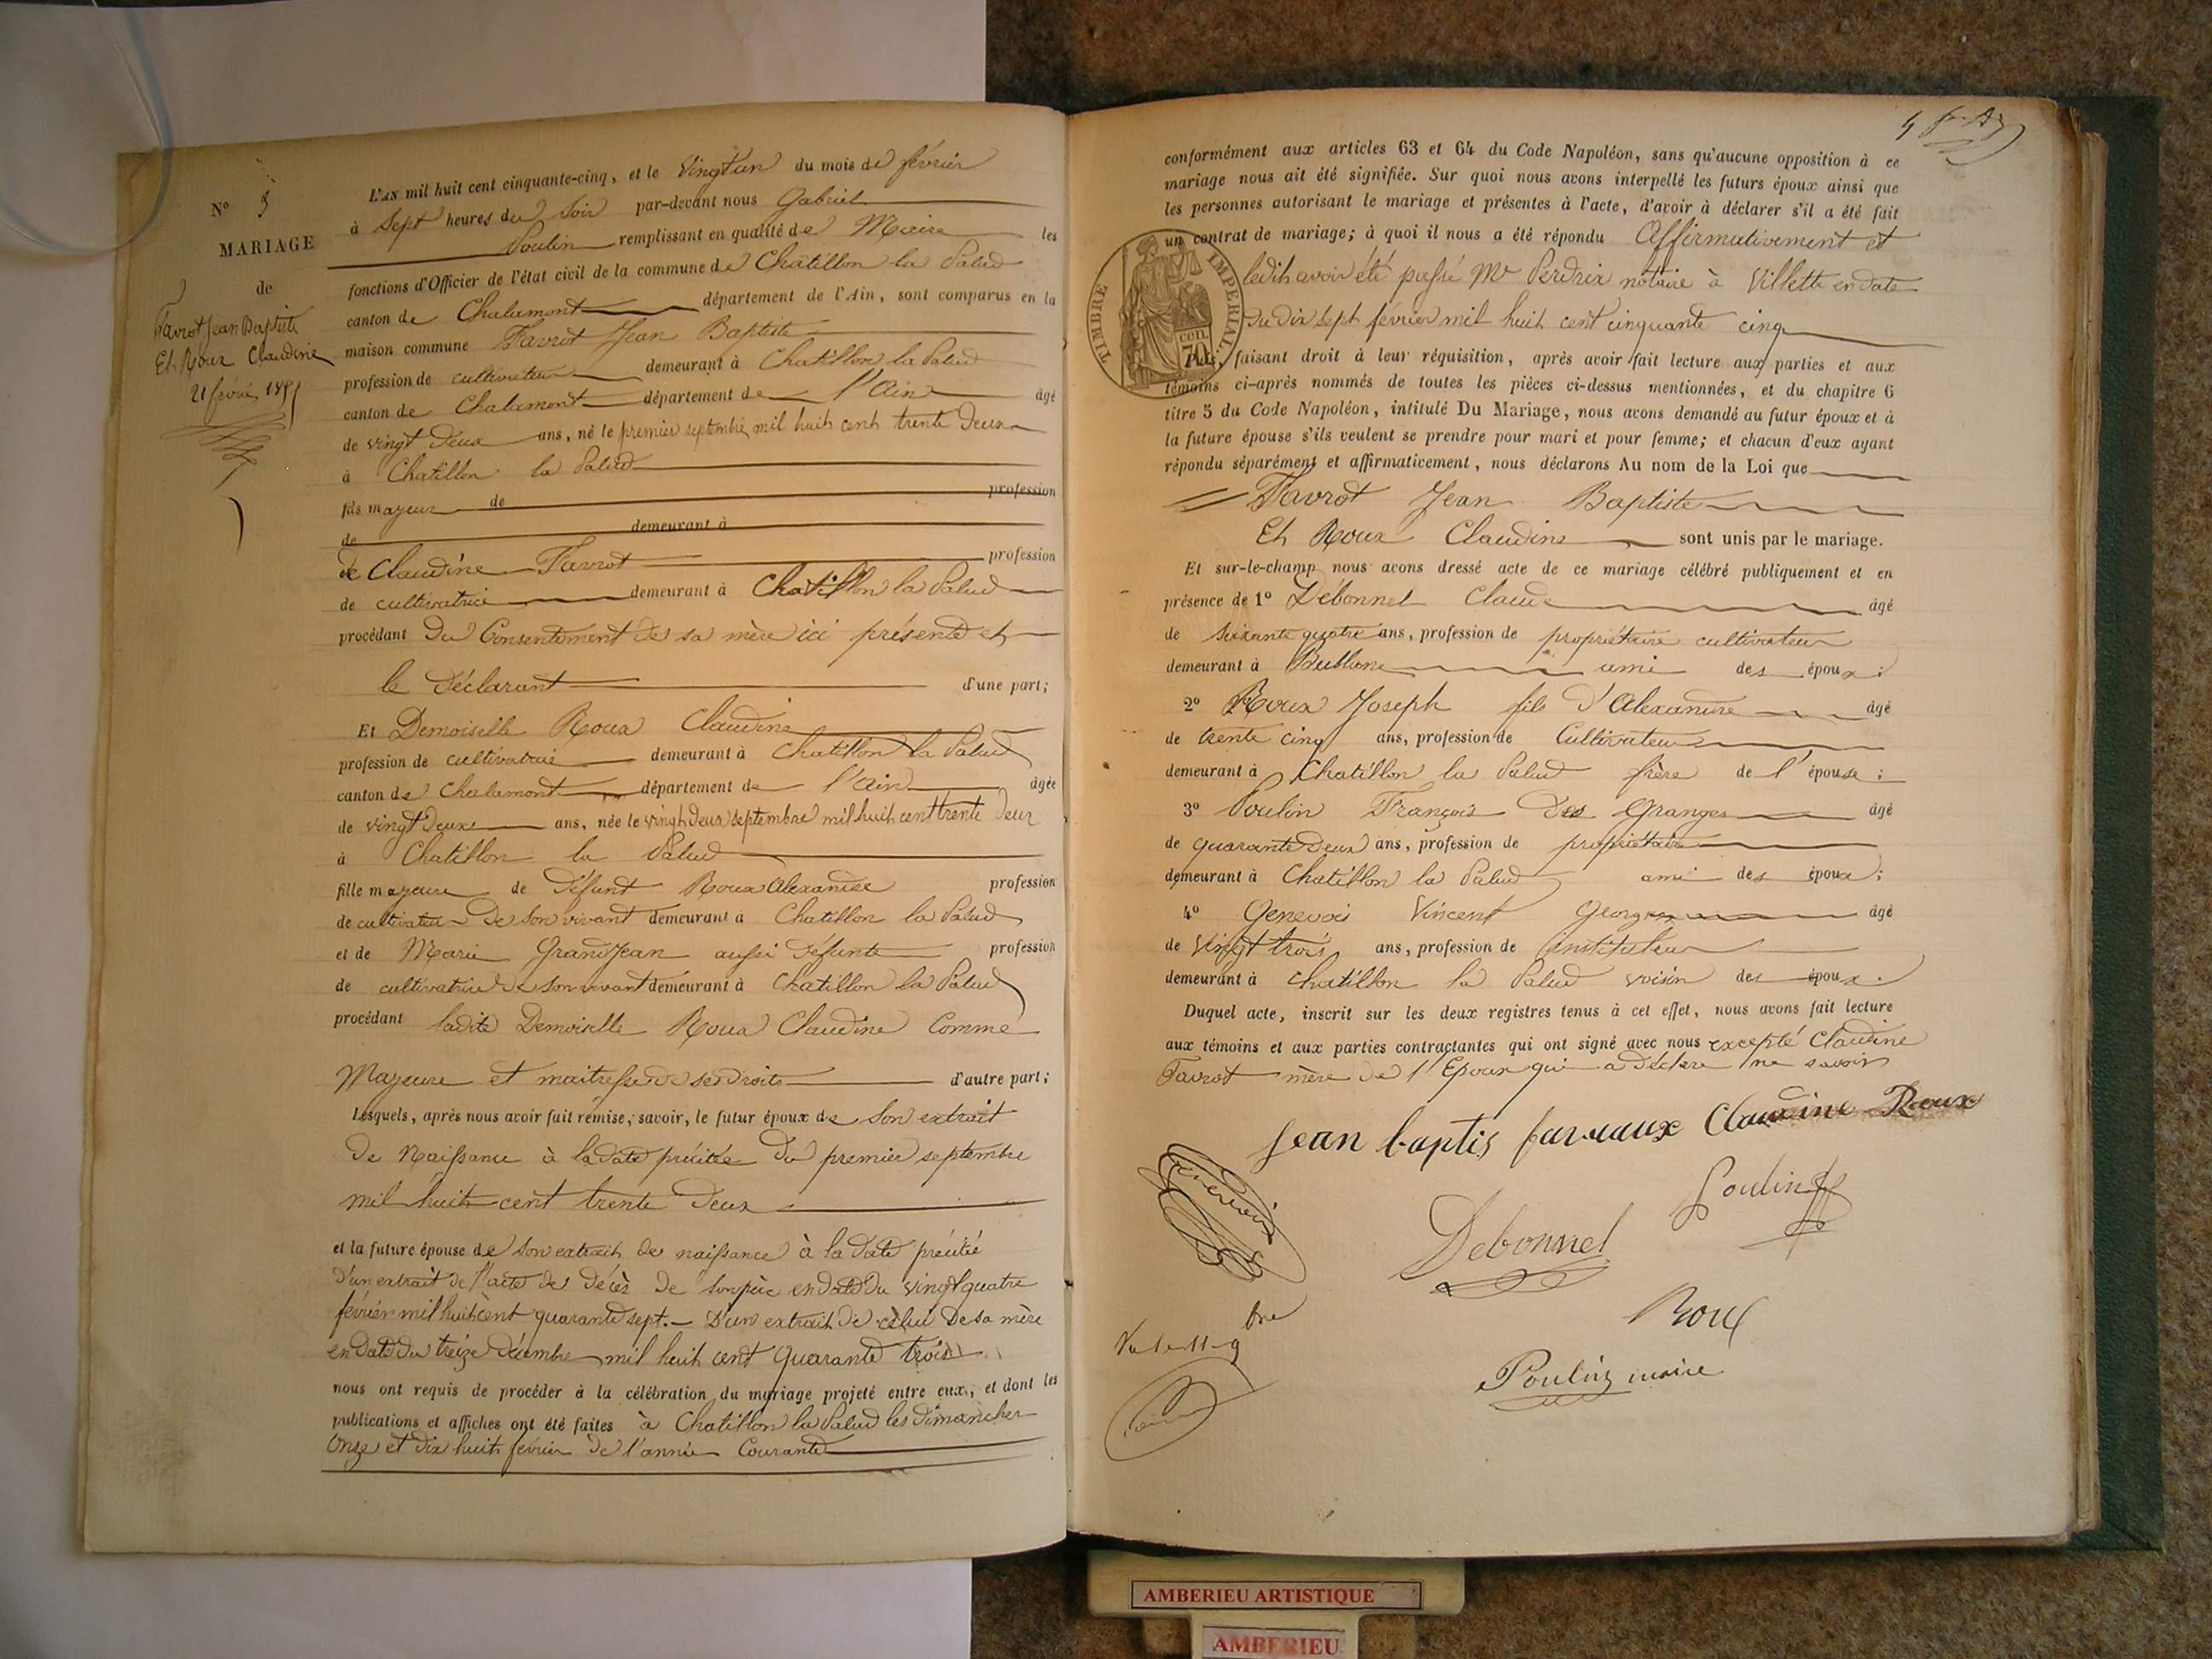 N° 3
MARIAGE
de
Favrot Jean Baptiste
Et Roux Claudine
21 février 1855
L'AN mil huit cent cinquante-cinq, et le Vingt un du mois de février
à Sept heures du Soir par-devant nous Gabriel
Poulin remplissant en qualité de Maire les
fonctions d'Officier de l'état civil de la commune de Chatillon la Palud
canton de Chalamont département de l'Ain, sont comparus en la
maison commune Favrot Jean Baptiste
profession de cultivateur demeurant à Chatillon la Palud
canton de Chalamont département de l'Ain âgé
de vingt deux ans, né le premier septembre mil huit cent trente deux
à Chatillon la Palud
fils majeur de profession
de demeurant à
de Claudine Favrot profession
de cultivatrice demeurant à Chatillon la Palud
procédant du Consentement de sa mère ici présente et
le déclarant d'une part;
Et Demoiselle Roux Claudine
profession de cultivatrice demeurant à Chatillon la Palud
canton de Chalamont département de l'Ain âgée
de vingt deux ans, née le vingt deux septembre mil huit cent trente deux
à Chatillon la Palud
fille majeure de défunt Roux Alexandre profession
de cultivateur de son vivant demeurant à Chatillon la Palud
et de Marie Grandjean aussi défunte profession
de cultivatrice de son vivant demeurant à Chatillon la Palud
procédant ladite Demoiselle Roux Claudine Comme
Majeure et maitresse de ses droits d'autre part;
Lesquels, après nous avoir fait remise, savoir, le futur époux de Son extrait
de Naissance à la date précitée du premier septembre
mil huit cent trente deux
et la future épouse de son extrait de naissance à la date précitée
d'un extrait de l'acte de décès de son père en date du vingt quatre
février mil huit cent quarante sept. – D'un extrait de celui de sa mère
en date du treize décembre mil huit cent quarante trois
nous ont requis de procéder à la célébration du mariage projeté entre eux, et dont les
publications et affiches ont été faites à Chatillon la Palud les dimanches
Onze et dix huit février de l'année Courante
conformément aux articles 63 et 64 du Code Napoléon, sans qu'aucune opposition à ce
mariage nous ait été signifiée. Sur quoi nous avons interpellé les futurs époux ainsi que
les personnes autorisant le mariage et présentes à l'acte, d'avoir à déclarer s'il a été fait
un contrat de mariage; à quoi il nous a été répondu Affirmativement et
ledit avoir été passé Me Perdrix notaire à Villette en date
du dix sept février mil huit cent cinquante cinq
TIMBRE IMPÉRIAL
70 CEN.
faisant droit à leur réquisition, après avoir fait lecture aux parties et aux
témoins ci-après nommés de toutes les pièces ci-dessus mentionnées, et du chapitre 6
titre 5 du Code Napoléon, intitulé Du Mariage, nous avons demandé au futur époux et à
la future épouse s'ils veulent se prendre pour mari et pour femme; et chacun d'eux ayant
répondu séparément et affirmativement, nous déclarons Au nom de la Loi que
Favrot Jean Baptiste
Et Roux Claudine sont unis par le mariage.
Et sur-le-champ nous avons dressé acte de ce mariage célébré publiquement et en
présence de 1° Débonnel Claude âgé
de soixante quatre ans, profession de propriétaire cultivateur
demeurant à Bublanc ami des époux;
2° Roux Joseph fils d'Alexandre âgé
de trente cinq ans, profession de Cultivateur
demeurant à Chatillon la Palud frère de l'épouse;
3° Poulin François des Granges âgé
de quarante deux ans, profession de propriétaire
demeurant à Chatillon la Palud ami des époux;
4° Genevois Vincent Georges âgé
de Vingt trois ans, profession de instituteur
demeurant à Chatillon la Palud voisin des époux.
Duquel acte, inscrit sur les deux registres tenus à cet effet, nous avons fait lecture
aux témoins et aux parties contractantes qui ont signé avec nous excepté Claudine
Favrot mère de l'Epoux qui a déclaré ne savoir
Jean baptis favraux Claudine Roux
Genevois
Poulin
Debonnel
Roux
Poulin maire
AMBERIEU ARTISTIQUE
AMBERIEU